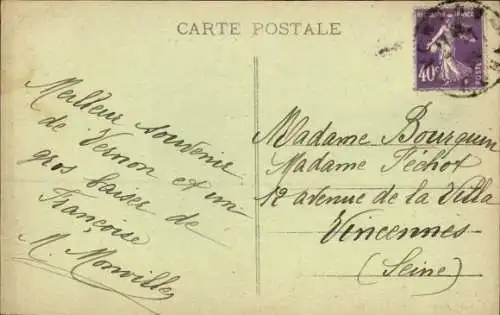 CARTE POSTALE
40c
POSTES
Meilleur souvenir
de Vernon et un
gros baiser de
Françoise
M. Monville
Madame Bourquin
Madame Féchot
12 avenue de la Villa
Vincennes
(Seine)